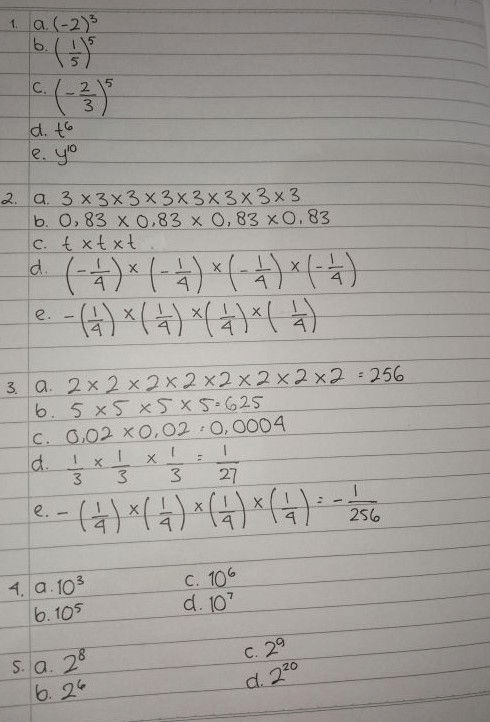 1. a. (-2)³
b. (1/5)⁵
c. (-2/3)⁵
d. t⁶
e. y¹⁰
2. a. 3 × 3 × 3 × 3 × 3 × 3 × 3 × 3
b. 0,83 × 0,83 × 0,83 × 0,83
c. t × t × t
d. (-1/4) × (-1/4) × (-1/4) × (-1/4)
e. -(1/4) × (1/4) × (1/4) × (1/4)
3. a. 2 × 2 × 2 × 2 × 2 × 2 × 2 × 2 = 256
b. 5 × 5 × 5 × 5 = 625
c. 0,02 × 0,02 = 0,0004
d. 1/3 × 1/3 × 1/3 = 1/27
e. -(1/4) × (1/4) × (1/4) × (1/4) = -1/256
4. a. 10³ c. 10⁶
b. 10⁵ d. 10⁷
5. a. 2⁸ c. 2⁹
b. 2⁶ d. 2²⁰